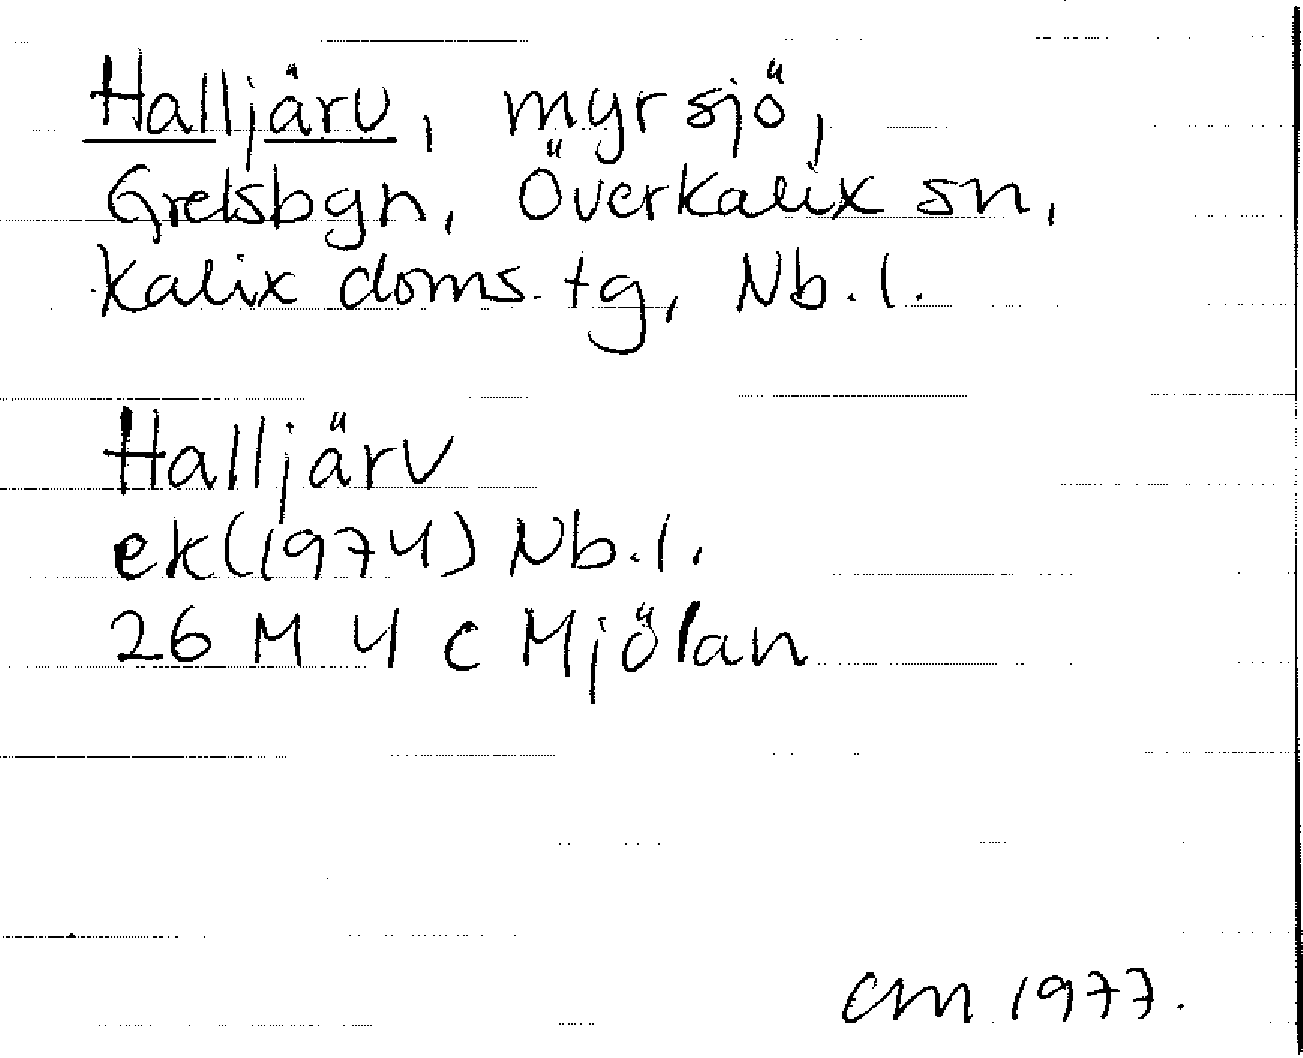 Halljärv, myrsjö,
Grelsbgn, Överkalix sn,
Kalix doms. tg, Nb. l.
Halljärv
ek(1974) Nb. l.
26 M 4 c Mjölan
CM 1977.